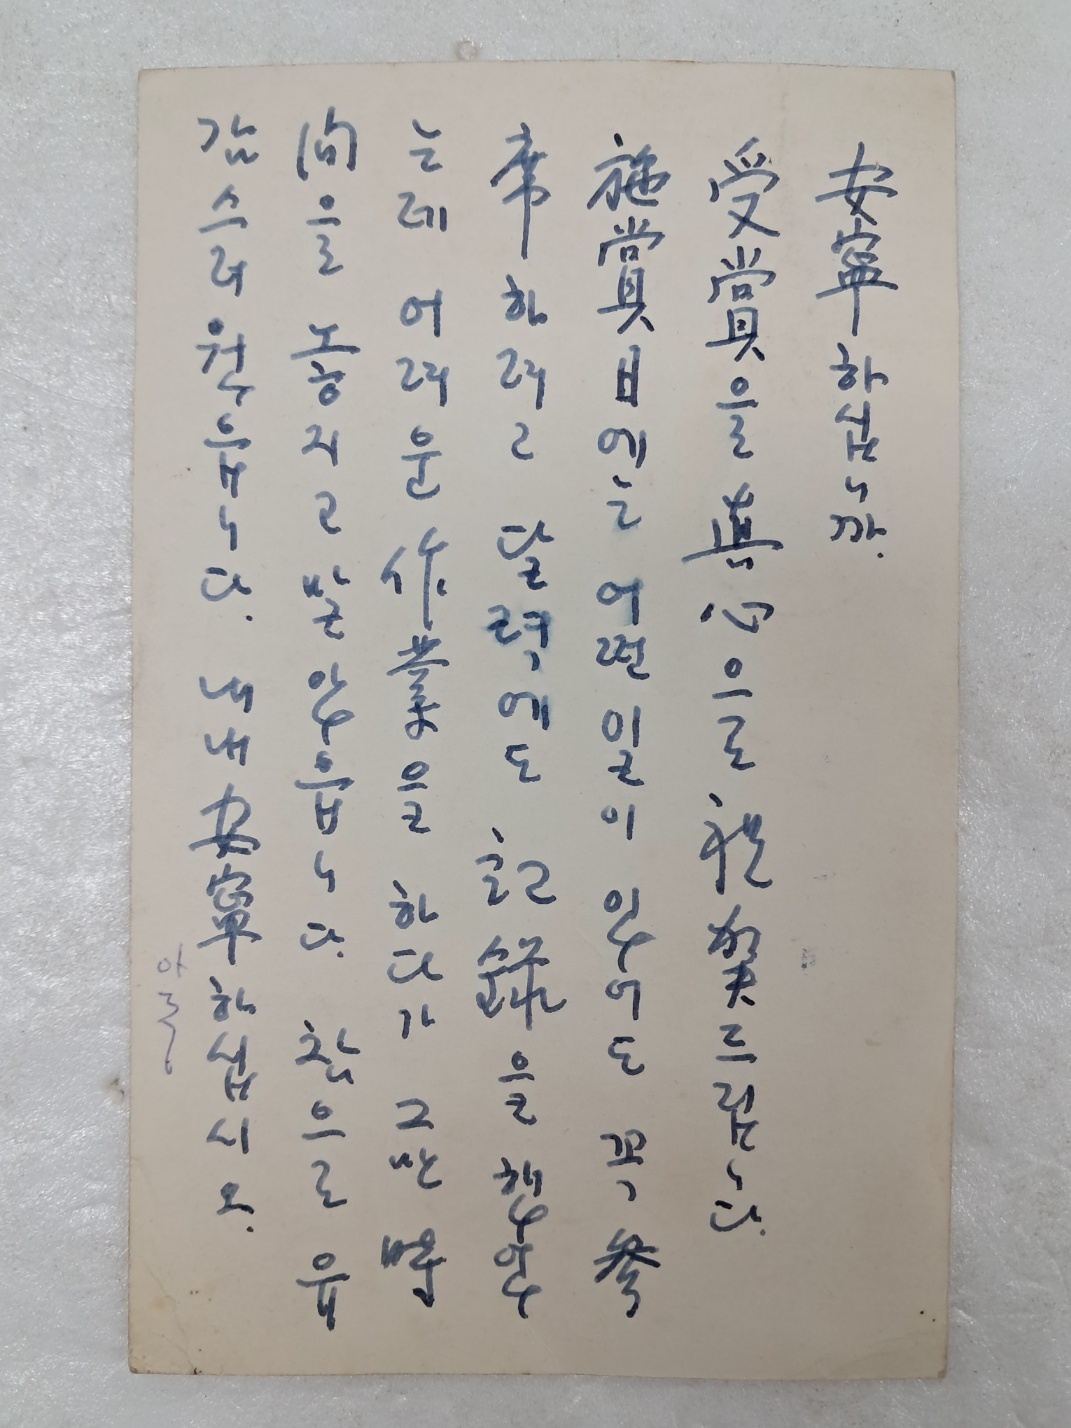 安寧하십니까.
受賞을 眞心으로 祝賀드립니다.
施賞日에는 어떤 일이 있어도 꼭 參
席하려고 달력에도 記錄을 했었
는데 어려운 作業을 하다가 그만 時
間을 놓지고 말았읍니다. 참으로 유
감스러웠읍니다. 내내 安寧하십시오.